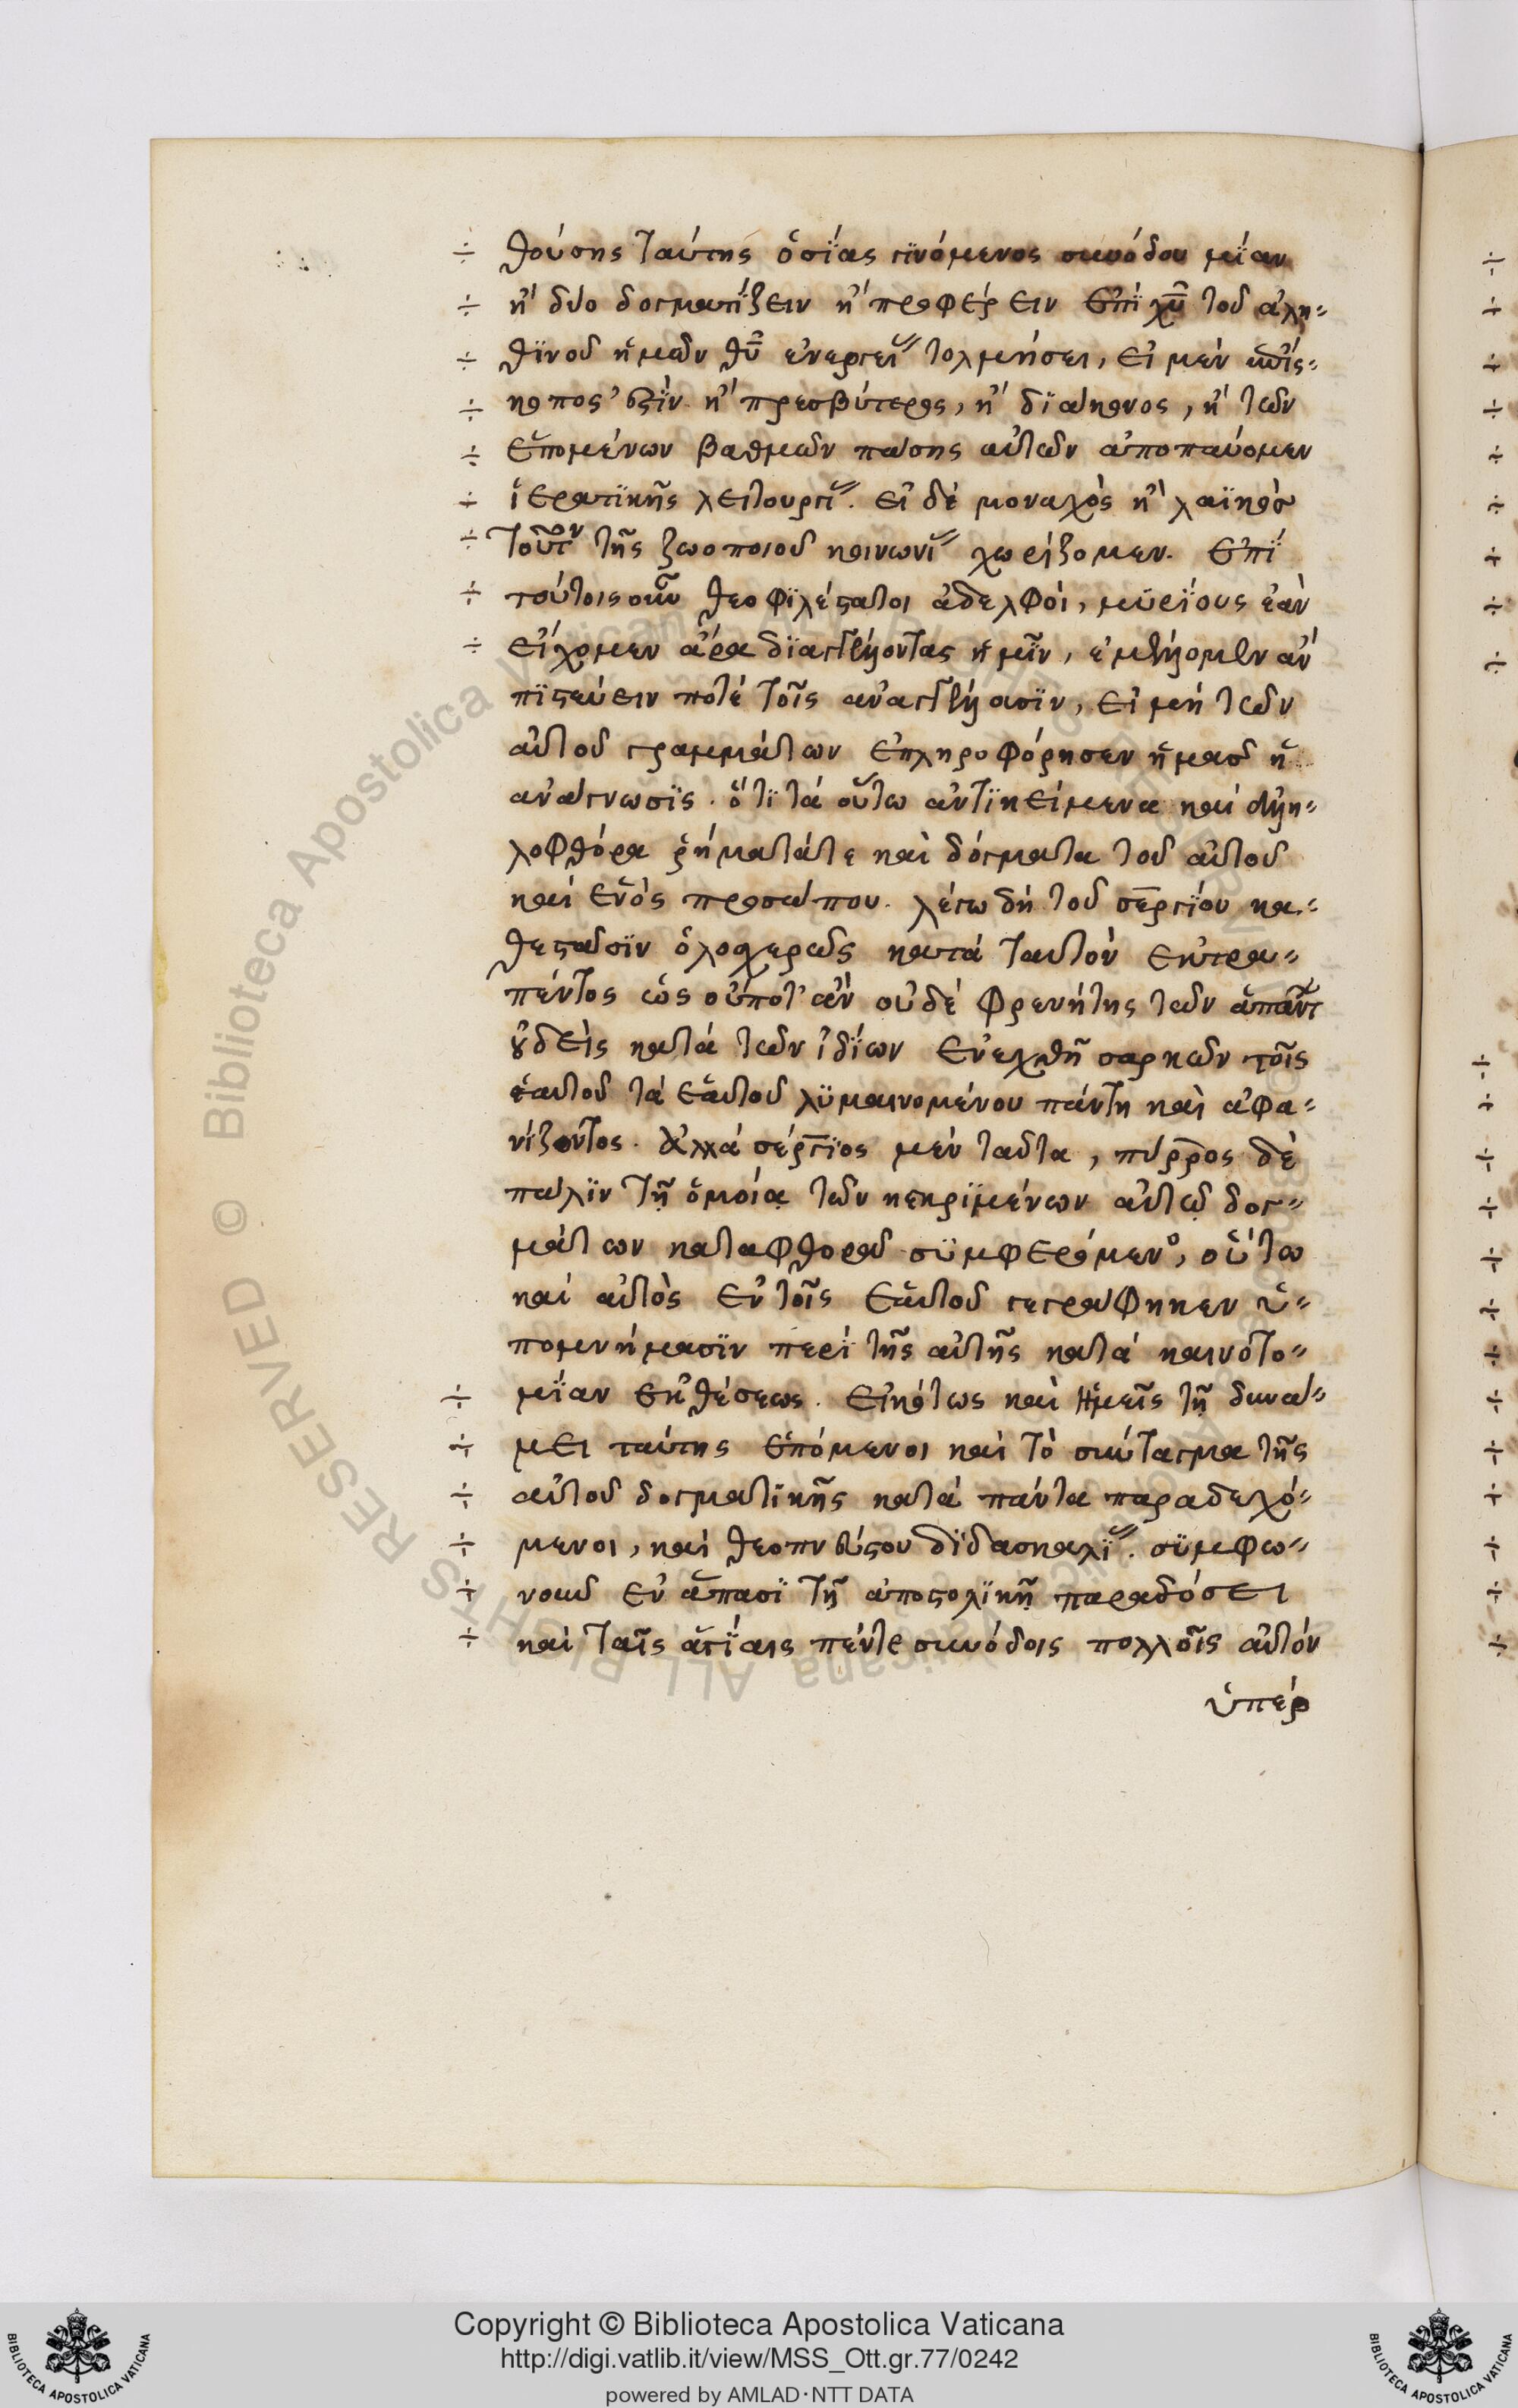 ÷ θούσης ταύτης ὁσίας γϊνόμενος συνόδου μΐαν
÷ ἢ δύο δογματΐζειν ἢ προφέρειν ἐπϊ χ̅υ̅ τοῦ ἀλη-
÷ θϊνοῦ ἡμῶν θ̅υ̅ ἐνεργεί" τολμήσει, εἰ μὲν ἐπίσ-
÷ κοπος ἐστΐν ἢ πρεσβύτερος, ἢ δϊάκονος, ἢ τῶν
÷ ἑπομένων βαθμῶν πάσης αὐτῶν ἀποπαύομεν
÷ ἱερατϊκῆς λειτουργί". εἰ δὲ μοναχὸς ἢ λαϊκὸσ
÷ τοῦτον τῆς ζωοποιοῦ κοινωνί" χωρίζομεν. ἐπΐ
÷ τούτοις οὖν θεοφϊλέστατοι ἀδελφοὶ, μϋρΐους ἐὰν
÷ εἴχομεν ἄρα δϊαγγέλλοντας ἡμῖν, ἐμέλλομεν ἂν
πϊστεύειν ποτὲ τοῖς ἀναγγέλλουσϊν, εἰ μὴ τῶν
αὐτοῦ γραμμάτων ἐπληροφόρησεν ἡμᾶσ ἡ
ἀνάγνωσϊς. ὅτϊ τὰ οὕτω ἀντϊκείμενα καὶ ἀλλη-
λοφθόρα ῥήματά τε καὶ δόγματα τοῦ αὐτοῦ
καὶ ἑνὸς προσώπου. λέγω δὴ τοῦ σεργΐου κα-
θεστᾶσϊν ὁλοσχερῶς κατὰ ταυτὸν ἐκτρα-
πέντος ὡς οὔποτ' ἂν οὐδὲ φρενήτης τῶν ἁπάντ
οὐδεὶς κατὰ τῶν ἰδΐων ἐνεχθῆ σαρκῶν τοῖς
ἑαυτοῦ τὰ ἑαυτοῦ λϋμαινομένου πάντη καὶ ἀφα-
νΐζοντος. ἀλλὰ σέργϊος μὲν ταῦτα, πύρρος δὲ
πάλϊν τῇ ὁμοίᾳ τῶν κεκρϊμένων αὐτῷ δογ-
μάτων καταφθορᾶ σϋμφερόμενο, οὕτω
καὶ αὐτὸς ἐν τοῖς ἑαυτοῦ γεγράφηκεν ὑ-
πομνήμασϊν περΐ τῆς αὐτῆς κατὰ καινότο-
÷ μΐαν ἐκθέσεως. εἰκότως καὶ ἡμεῖς τῇ δυνά-
÷ μει ταύτης ἑπόμενοι καὶ τὸ σύνταγμα τῆς
÷ αὐτοῦ δογματϊκῆς κατὰ πάντα παραδεχό-
÷ μενοι, καὶ θεοπνεύστου δϊδασκαλί". σϋμφω-
÷ νουσ ἐν ἅπασϊ τῇ ἀποστολϊκῇ παραδόσει
÷ καὶ ταῖς ἁγΐαις πέντε συνόδοις πολλοῖς αὐτὸν
ὑπὲρ
Copyright © Biblioteca Apostolica Vaticana
http://digi.vatlib.it/view/MSS_Ott.gr.77/0242
powered by AMLAD·NTT DATA
BIBLIOTECA APOSTOLICA VATICANA
BIBLIOTECA APOSTOLICA VATICANA